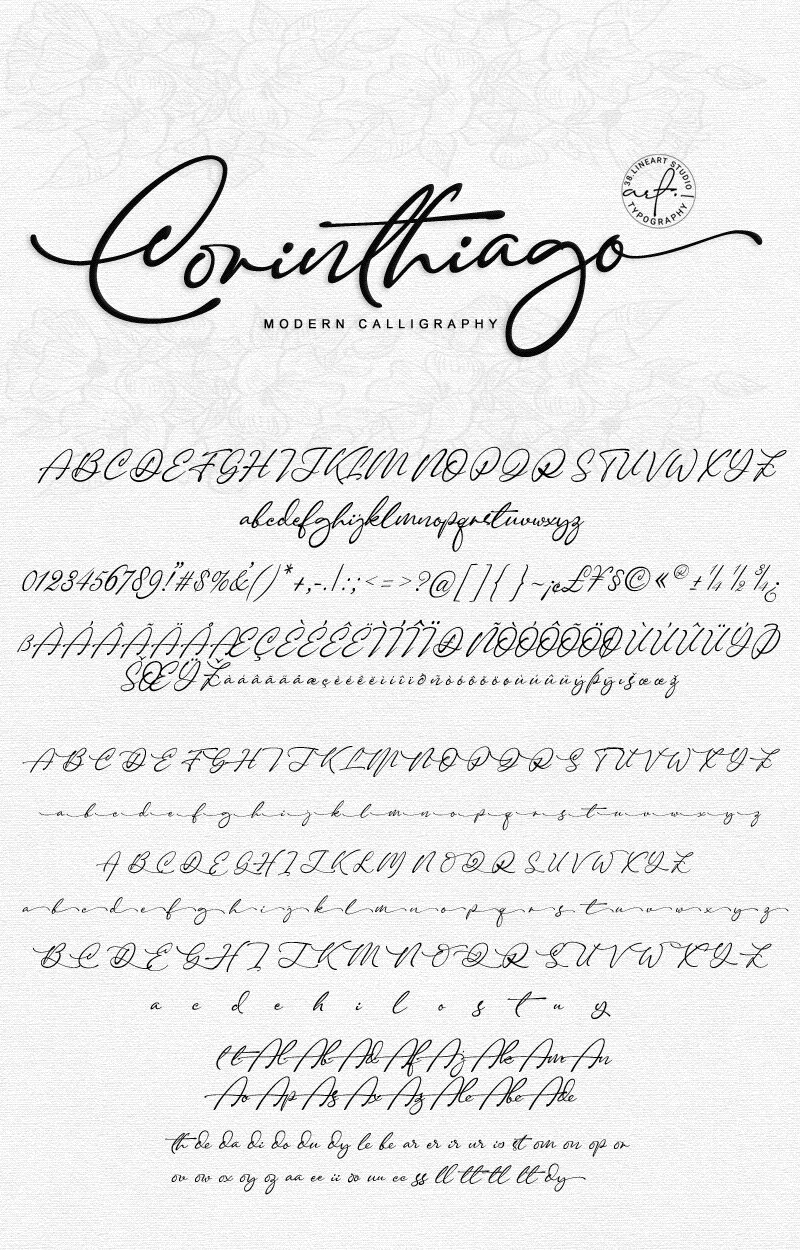 38.LINEART STUDIO
art.
TYPOGRAPHY
Corinthiago
MODERN CALLIGRAPHY
ABCDEFGHIJKLMNOPQRSTUVWXYZ
abcdefghijklmnopqrstuvwxyz
0123456789!"#$%&'()*+,-./:;<=>?@[]{}~¡¢£¥§©«®±¼½¾¿
ßÀÁÂÃÄÅÆÇÈÉÊËÌÍÎÏÐÑÒÓÔÕÖØÙÚÛÜÝÞ
ŠŒŸŽàáâãäåæçèéêëìíîïðñòóôõöøùúûüýþÿıšœœž
ABCDEFGHIJKLMNOPQRSTUVWXYZ
a b c d e f g h i j k l m n o p q r s t u v w x y z
ABCDEGHIJKLMNOQRSUVWXYZ
a b c d e f g h i j k l m n o p q r s t u v w x y z
BCDEGHIJKLMNOQRSUVWXYZ
a c d e h i l o s t u y
tt Al Ab Ad Af Aj Ak Am An
Ao Ap As Ax Az Ale Abe Ade
th de da di do du dy le be ar er ir ur is st om on op or
ov ow ox oy oz aa ee ii oo uu cc ss ll ttl tl tt dy